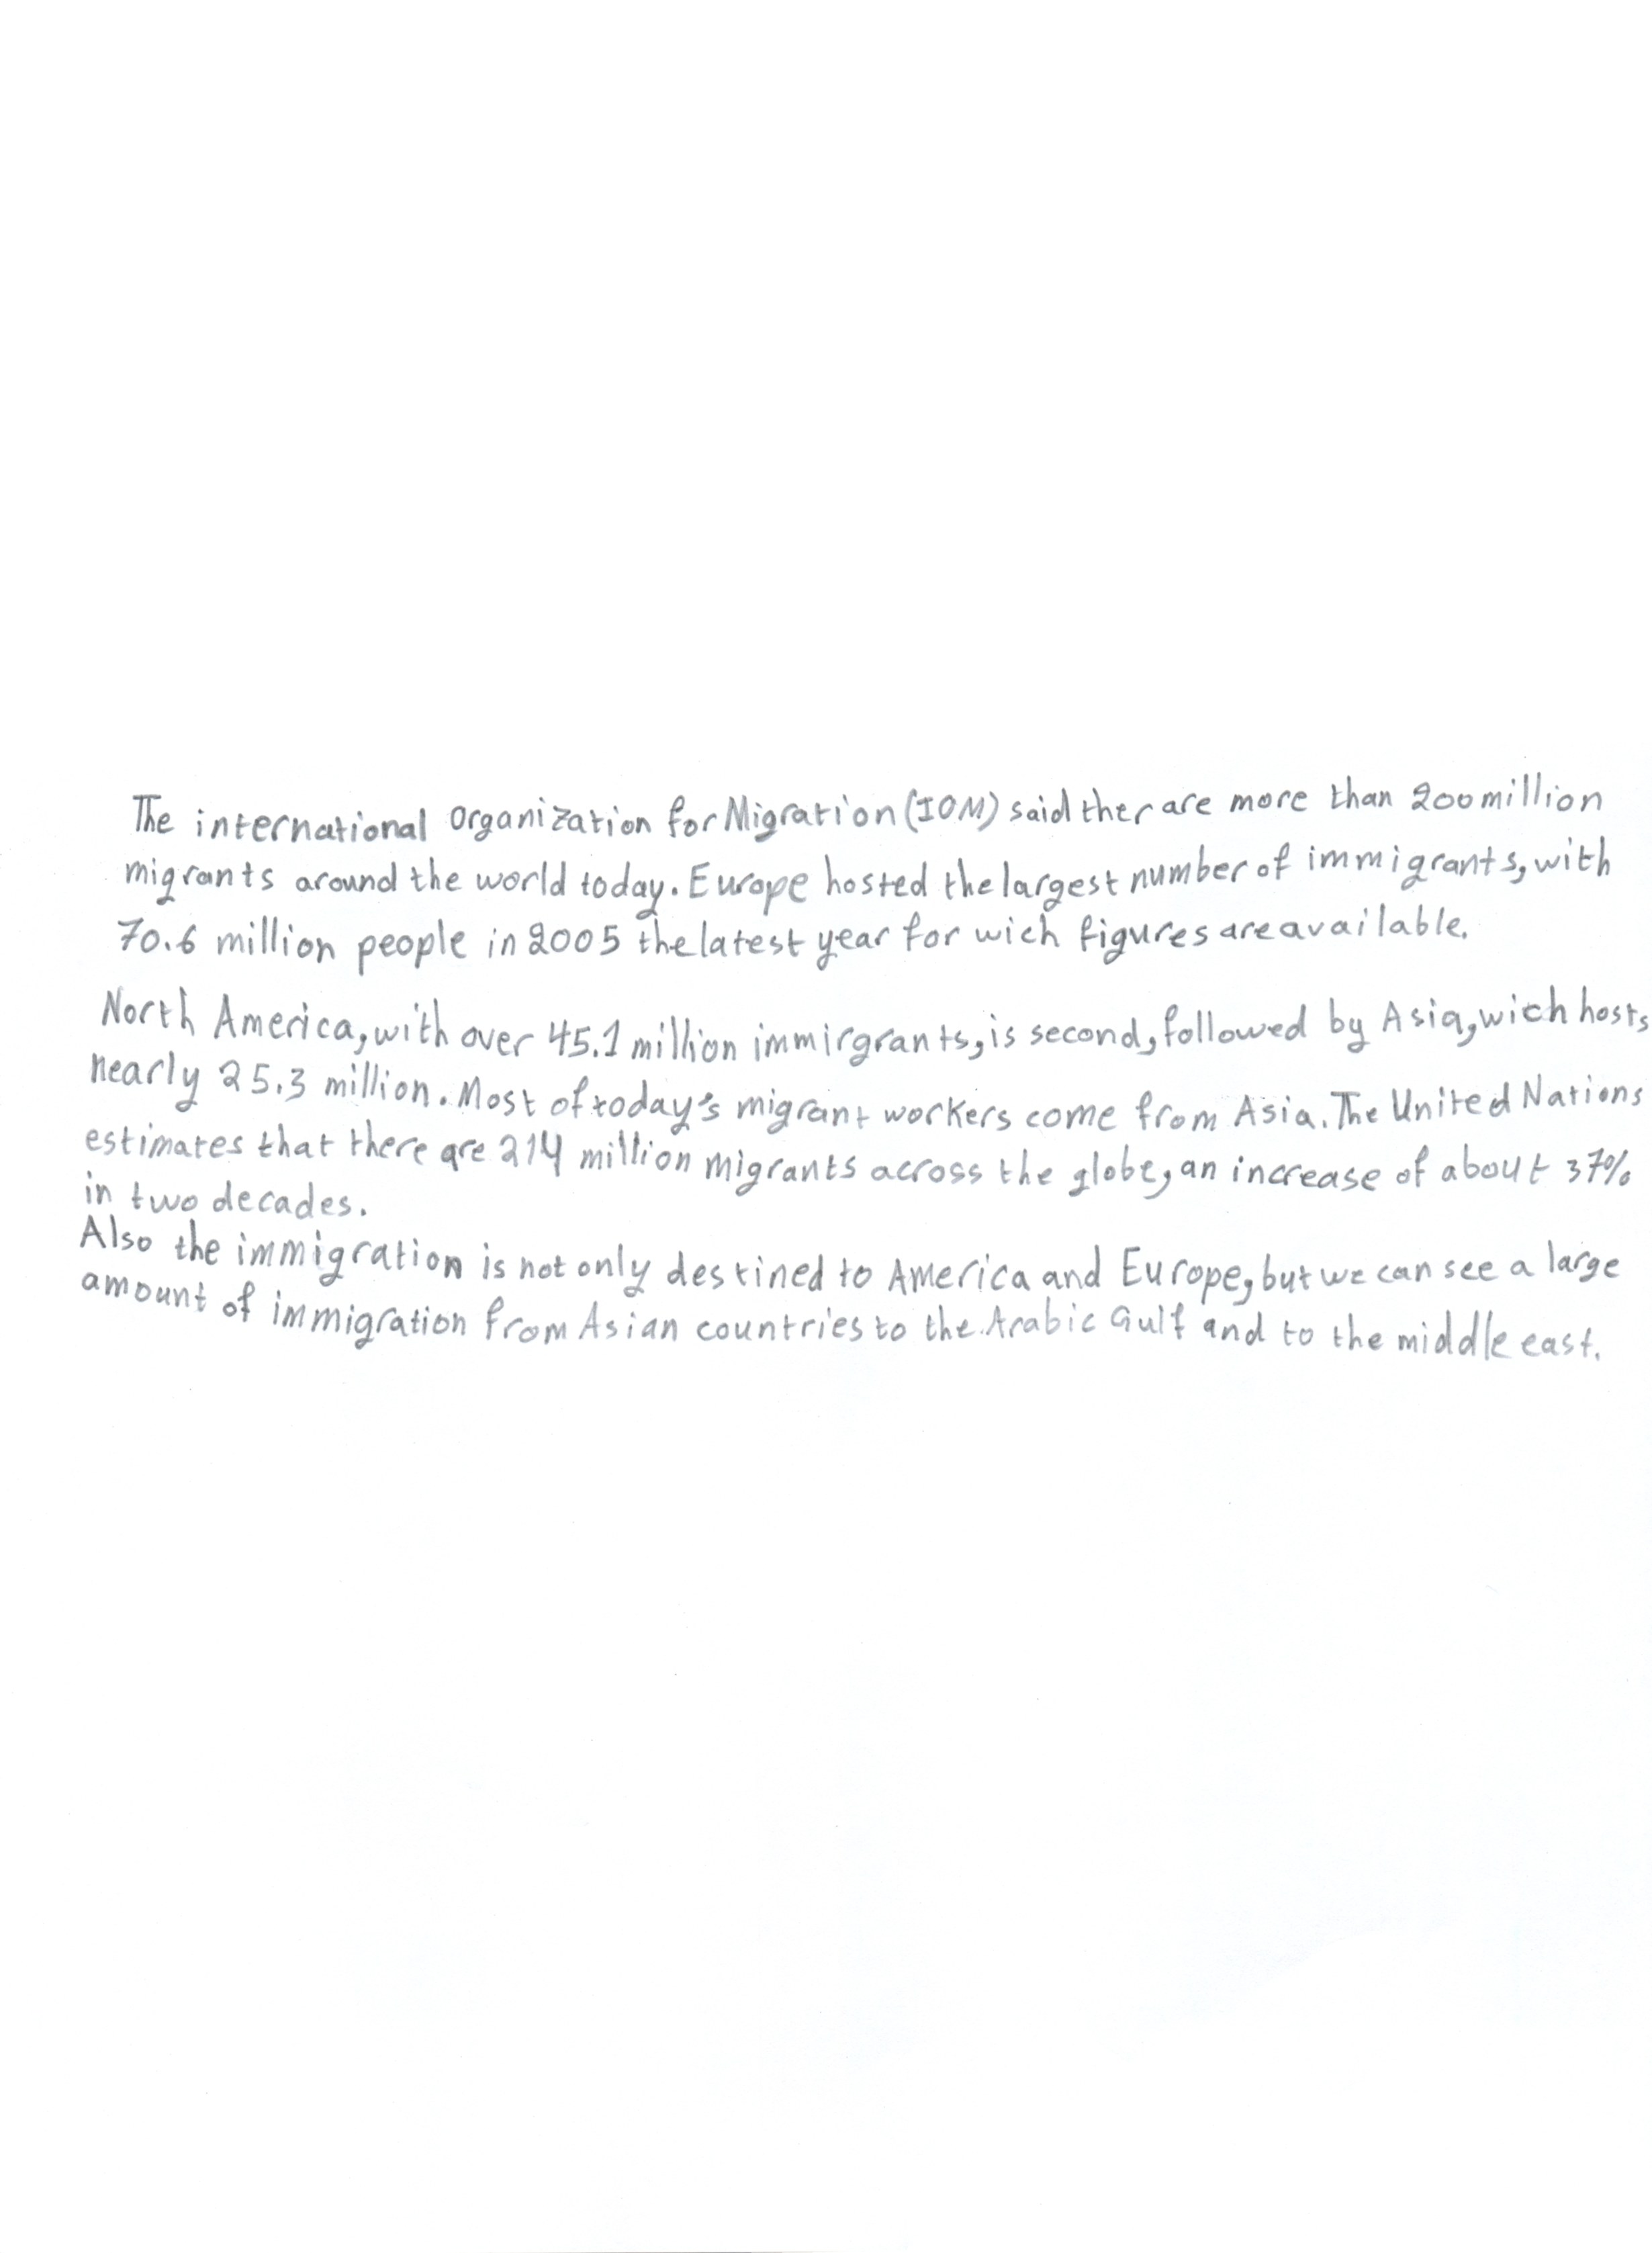 The international Organization for Migration (IOM) said ther are more than 200 million
migrants around the world today. Europe hosted the largest number of immigrants, with
70.6 million people in 2005 the latest year for wich figures are available.
North America, with over 45.1 million immirgrants, is second, followed by Asia, wich hosts
nearly 25.3 million. Most of today's migrant workers come from Asia. The United Nations
estimates that there are 214 million migrants across the globe, an increase of about 37%
in two decades.
Also the immigration is not only destined to America and Europe, but we can see a large
amount of immigration from Asian countries to the Arabic Gulf and to the middle east.